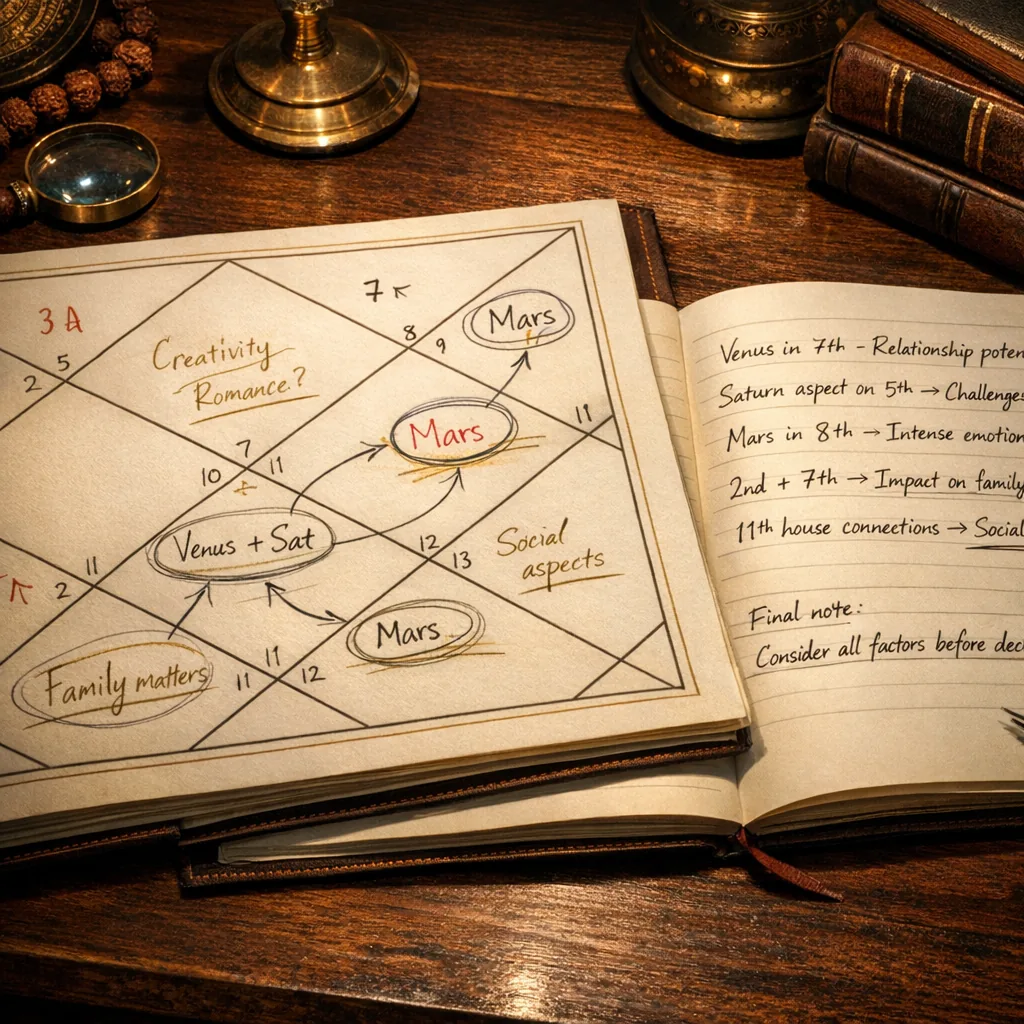 3 A
7
5
2
8
9
Mars
Creativity
Romance?
Mars
11
7
10
11
Venus + Sat
12
13
Social
aspects
11
2
Mars
Family matters
11
11
12
Venus in 7th - Relationship poten
Saturn aspect on 5th → Challenges
Mars in 8th → Intense emotion
2nd + 7th → Impact on family
11th house connections → Social
Final note:
Consider all factors before dec